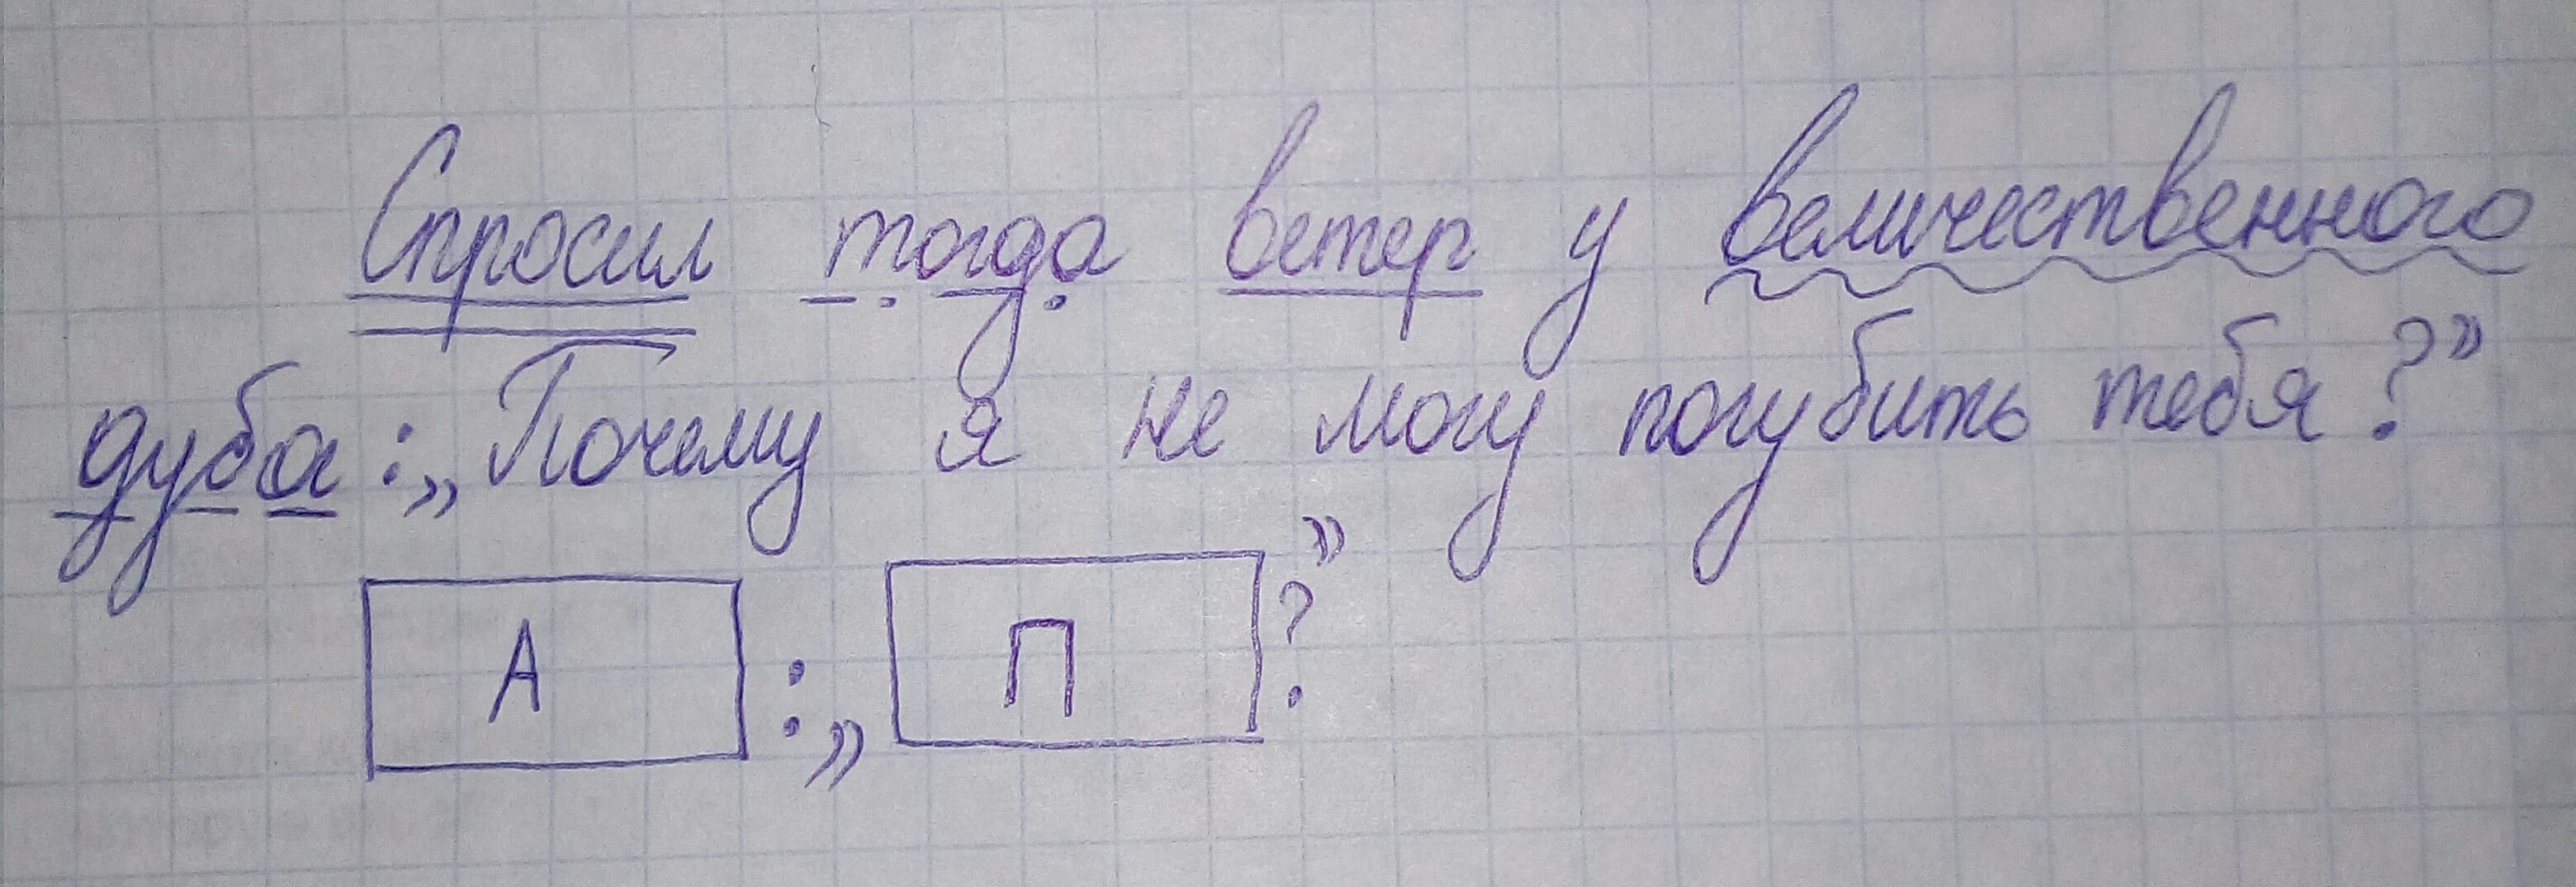 Спросил тогда ветер у величественного
дуба: „Почему я не могу погубить тебя?”
А : „ П ?”